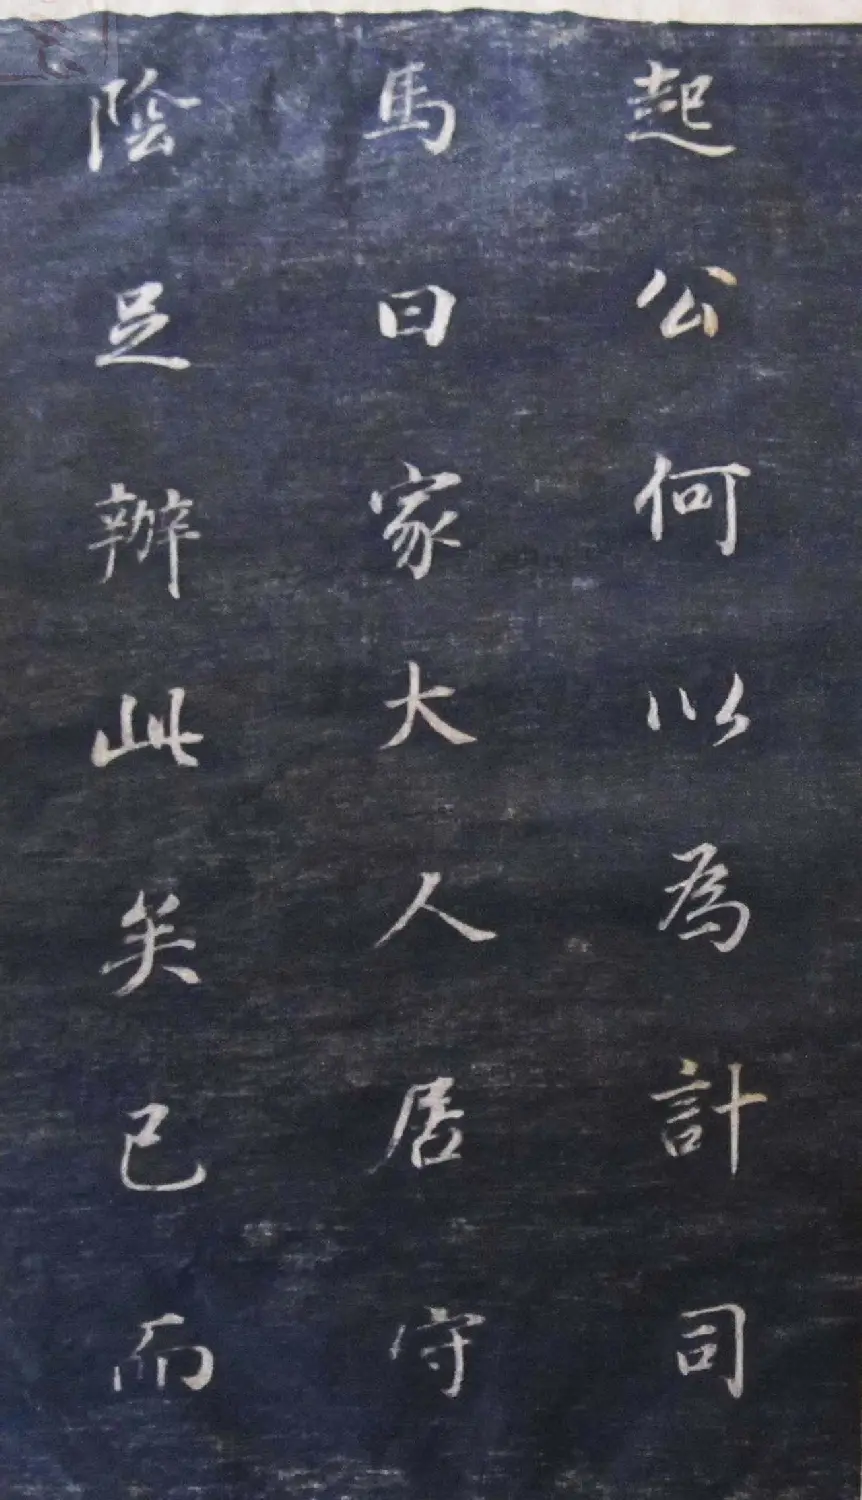 起公何以為計司
馬曰家大人居守
陰足辦此矣已而